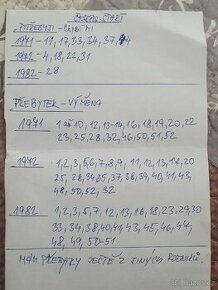 ČASOPIS START
POTŘEBUJI - CHYBÍ MI
1971 - 11, 17, 33, 34, 37, 44
1972 - 4, 18, 22, 31
1982 - 28
PŘEBYTEK - VÝMĚNA
1971 10, 12, 13-14, 16, 18, 19, 20, 22
23, 25, 28, 32, 46, 50, 51, 52
1972 1, 2, 3, 5, 6, 7, 8, 9, 11, 12, 13, 16, 20
20, 25, 28, 34, 35, 37, 38, 39, 40, 41, 43
48, 50, 52, 32
1982 1, 2, 3, 5, 7, 12, 13, 16, 18, 23, 29, 30
33, 34, 38, 40, 41, 43, 45, 46, 47
48, 49, 50-51
MÁM PŘEBYTKY JEŠTĚ Z JINÝCH ROČNÍKŮ.